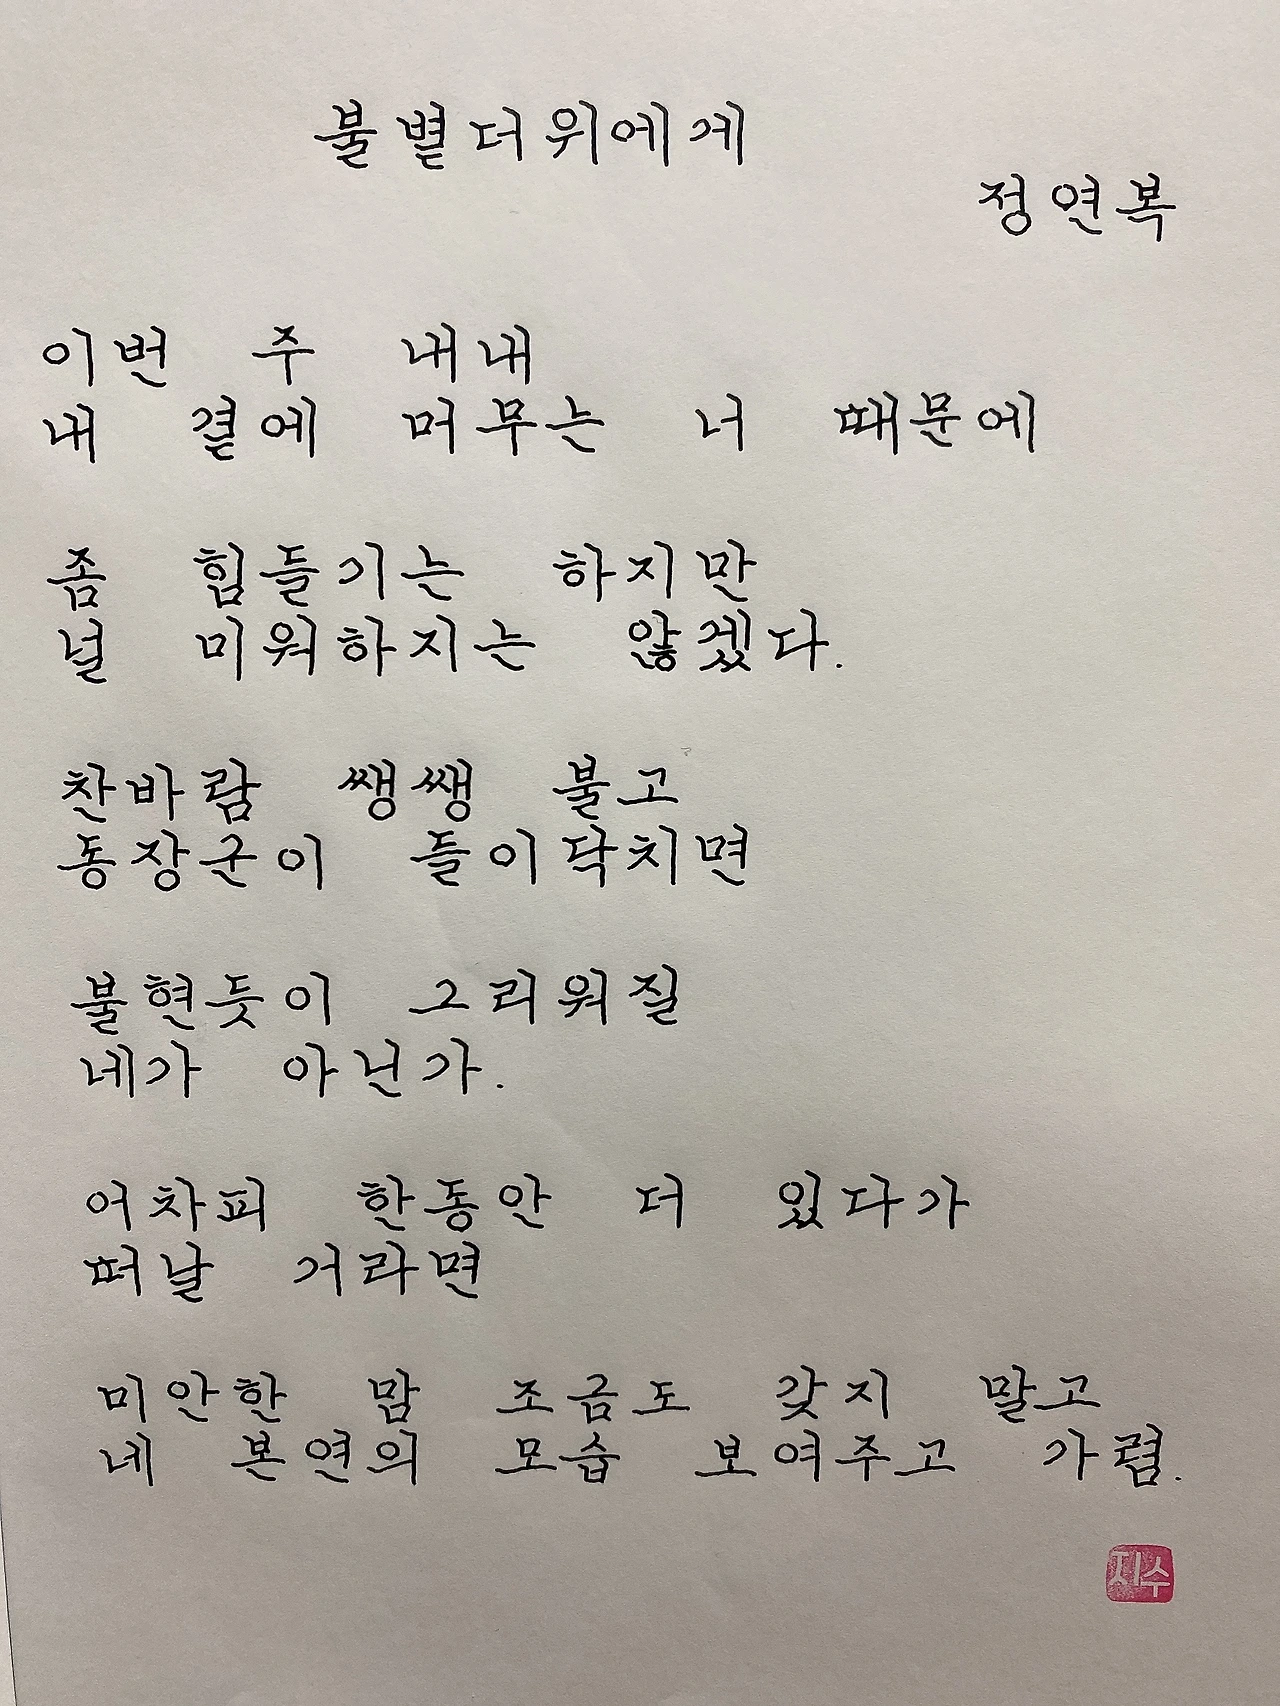 불볕더위에게
정연복
이번 주 내내
내 곁에 머무는 너 때문에
좀 힘들기는 하지만
널 미워하지는 않겠다.
찬바람 쌩쌩 불고
동장군이 들이닥치면
불현듯이 그리워질
네가 아닌가.
어차피 한동안 더 있다가
떠날 거라면
미안한 맘 조금도 갖지 말고
네 본연의 모습 보여주고 가렴.
지수